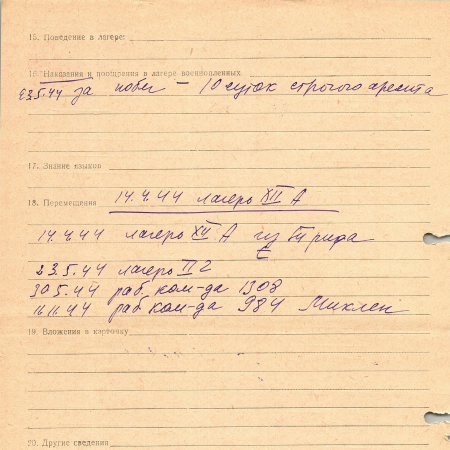 15. Поведение в лагере:
16. Наказания и поощрения в лагере военнопленных
23.5.44 за побег — 10 суток строгого ареста
17. Знание языков
18. Перемещения 14.4.44 лагерь XII А
14.4.44 лагерь XII А из
23.5.44 лагерь II
30.5.44 раб. ком-да 1308
16.11.44 раб ком-да 984 Миклен
19. Вложения в карточку
20. Другие сведения